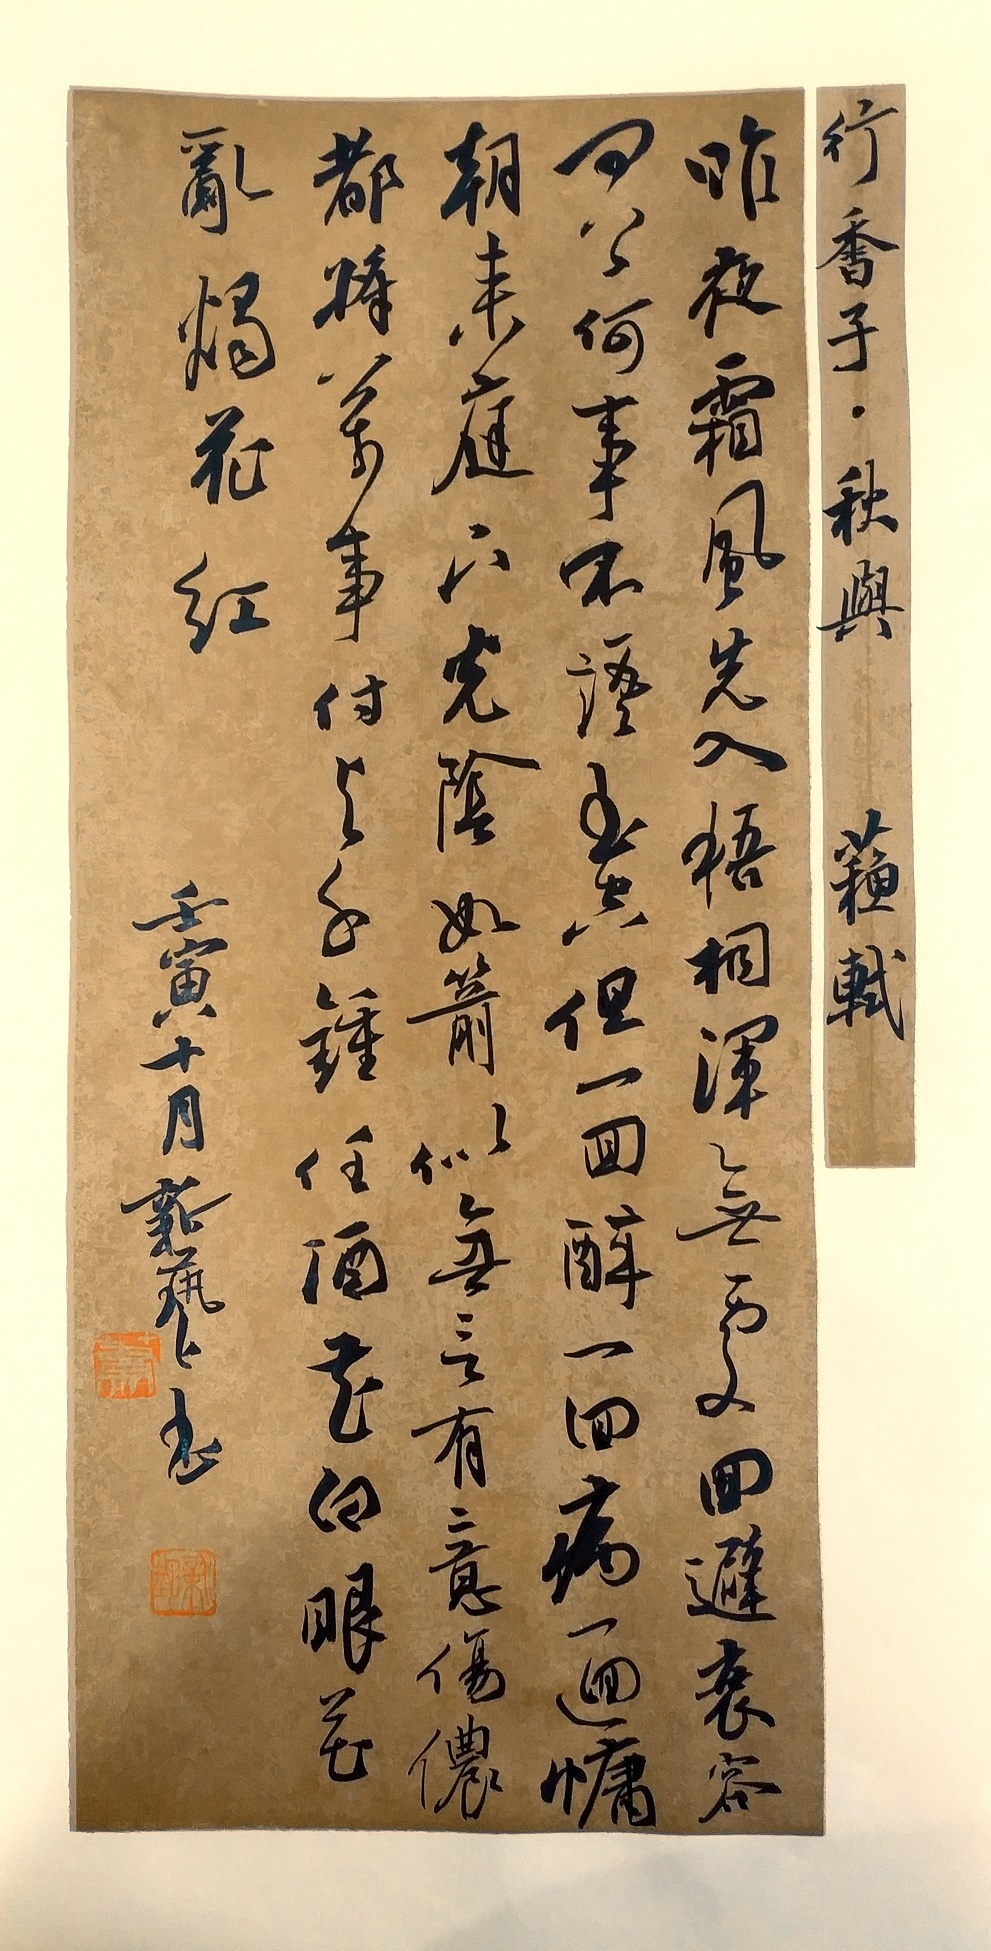 行香子·秋與 蘓軾
昨夜霜風先入梧桐渾無處回避衰容
问公何事不語書空但一回醉一回病一迴慵
朝来庭下光陰如箭似無言有意傷儂
都將萬事付与千鍾任酒花白眼花
亂燭花紅
壬寅十月書